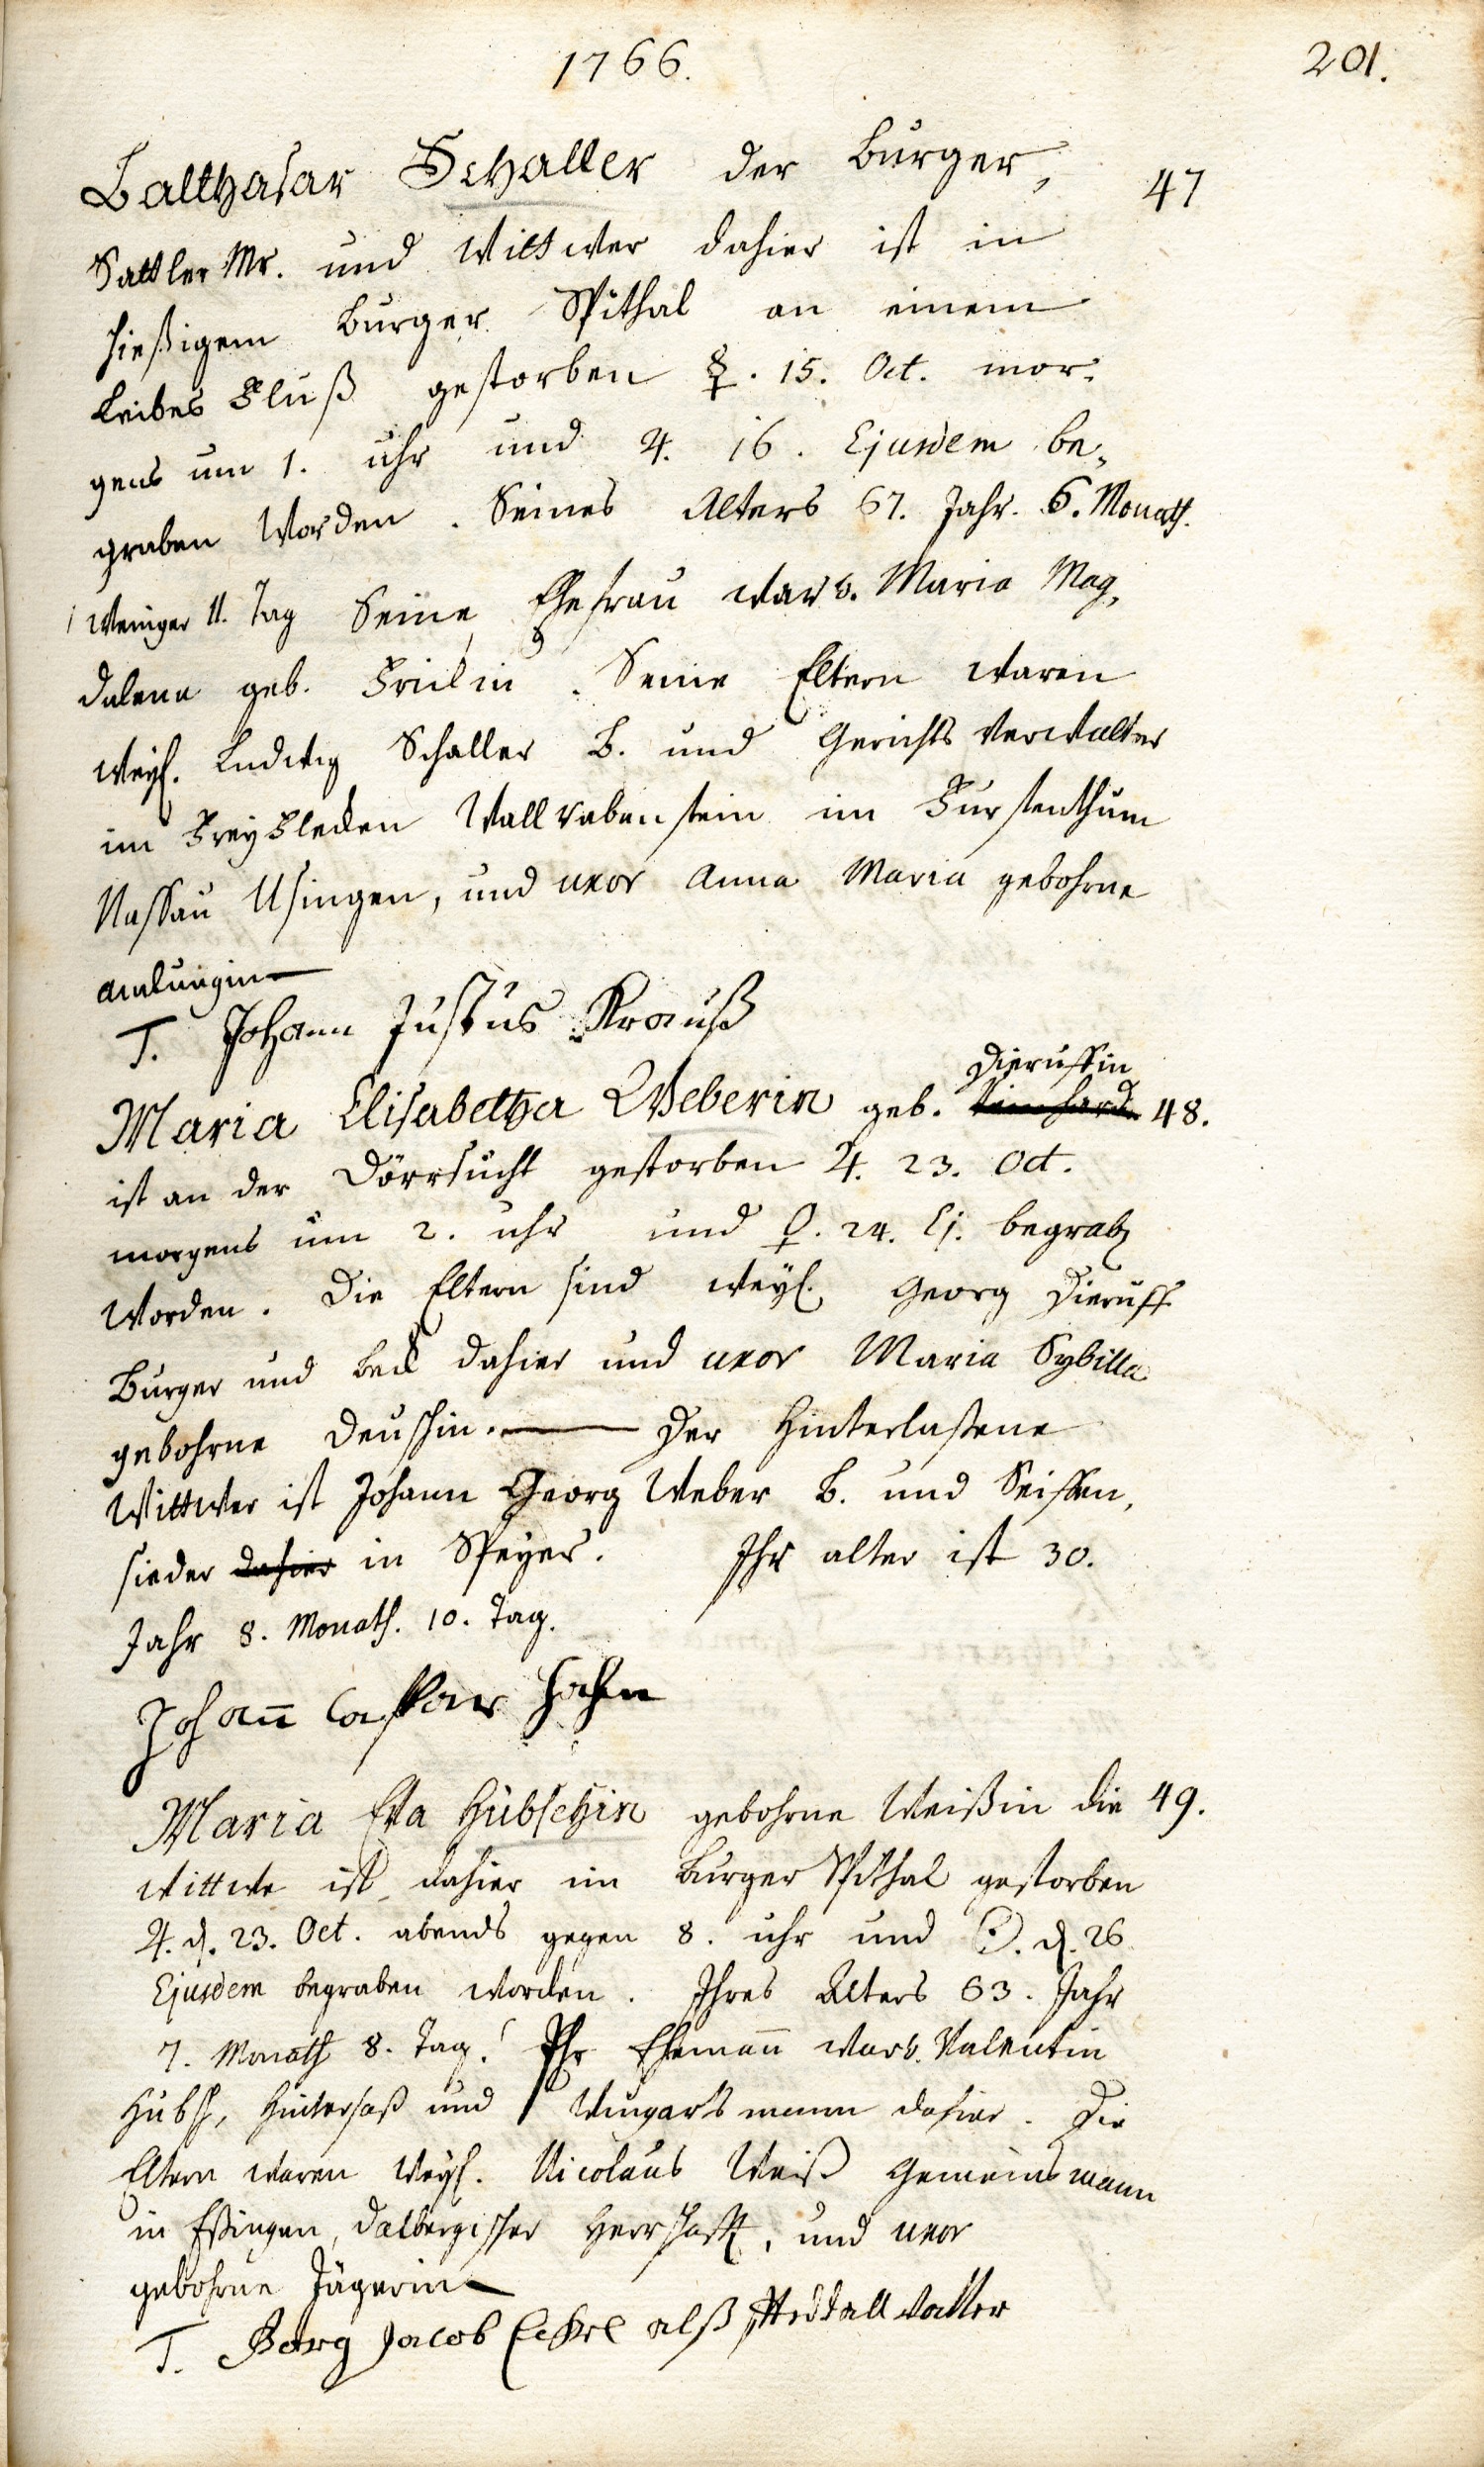 1766. 201.
Balthasar Schaller der Burger, 47
Sattler Mr. und Wittwer dahier ist in
hießigem Burger Spithal an einem
Leibes Fluß gestorben ☿. 15. Oct. mor-
gens um 1. uhr und ♃. 16. Ejusdem be-
graben Worden. Seines Alters 67. Jahr. 6. Monath.
weniger 11. Tag Seine Ehefrau war Maria Mag-
dalena geb. Seine Eltern waren
weyl. Ludwig Schaller B. und Gerichts Verwalter
im Frey Flecken Wallrabenstein im Furstenthum
Nassau Usingen, und uxor Anna Maria gebohrne
Amlungin
T. Johann Justus Krauß
Dieruffin
Maria Elisabetha Weberin geb. 48.
ist an der Dörrsucht gestorben ♃. 23. Oct.
morgens um 2. uhr und ♀. 24. Ej. begrab
Worden. Die Eltern sind weyl. Georg Dieruff
Burger und Beck dahier und uxor Maria Sybilla
gebohrne Deuschin. Der Hinterlaßene
Wittwer ist Johann Georg Weber B. und Seiffen-
sieder dahier in Speyer. Ihr alter ist 30.
Jahr 8. Monath. 10. Tag.
Johann Caspar Hahn
Maria Eva Hübschin gebohrne Weißin die 49.
wittwe ist dahier im Burger Spithal gestorben
♃. d. 23. Oct. abends gegen 8. uhr und ☉. d. 26
Ejusdem begraben worden. Ihres Alters 63. Jahr
7. Monath 8. Tag. Ihr Ehemann war Valentin
Hübsch, Hintersaß und Wingarts mann dahier. Die
Eltern waren weyl. Nicolaus Weiß Gemeinsmann
in Eßingen, Dalbergischer Herrschafft, und uxor
gebohrne Jägerin
T. Jacob alß